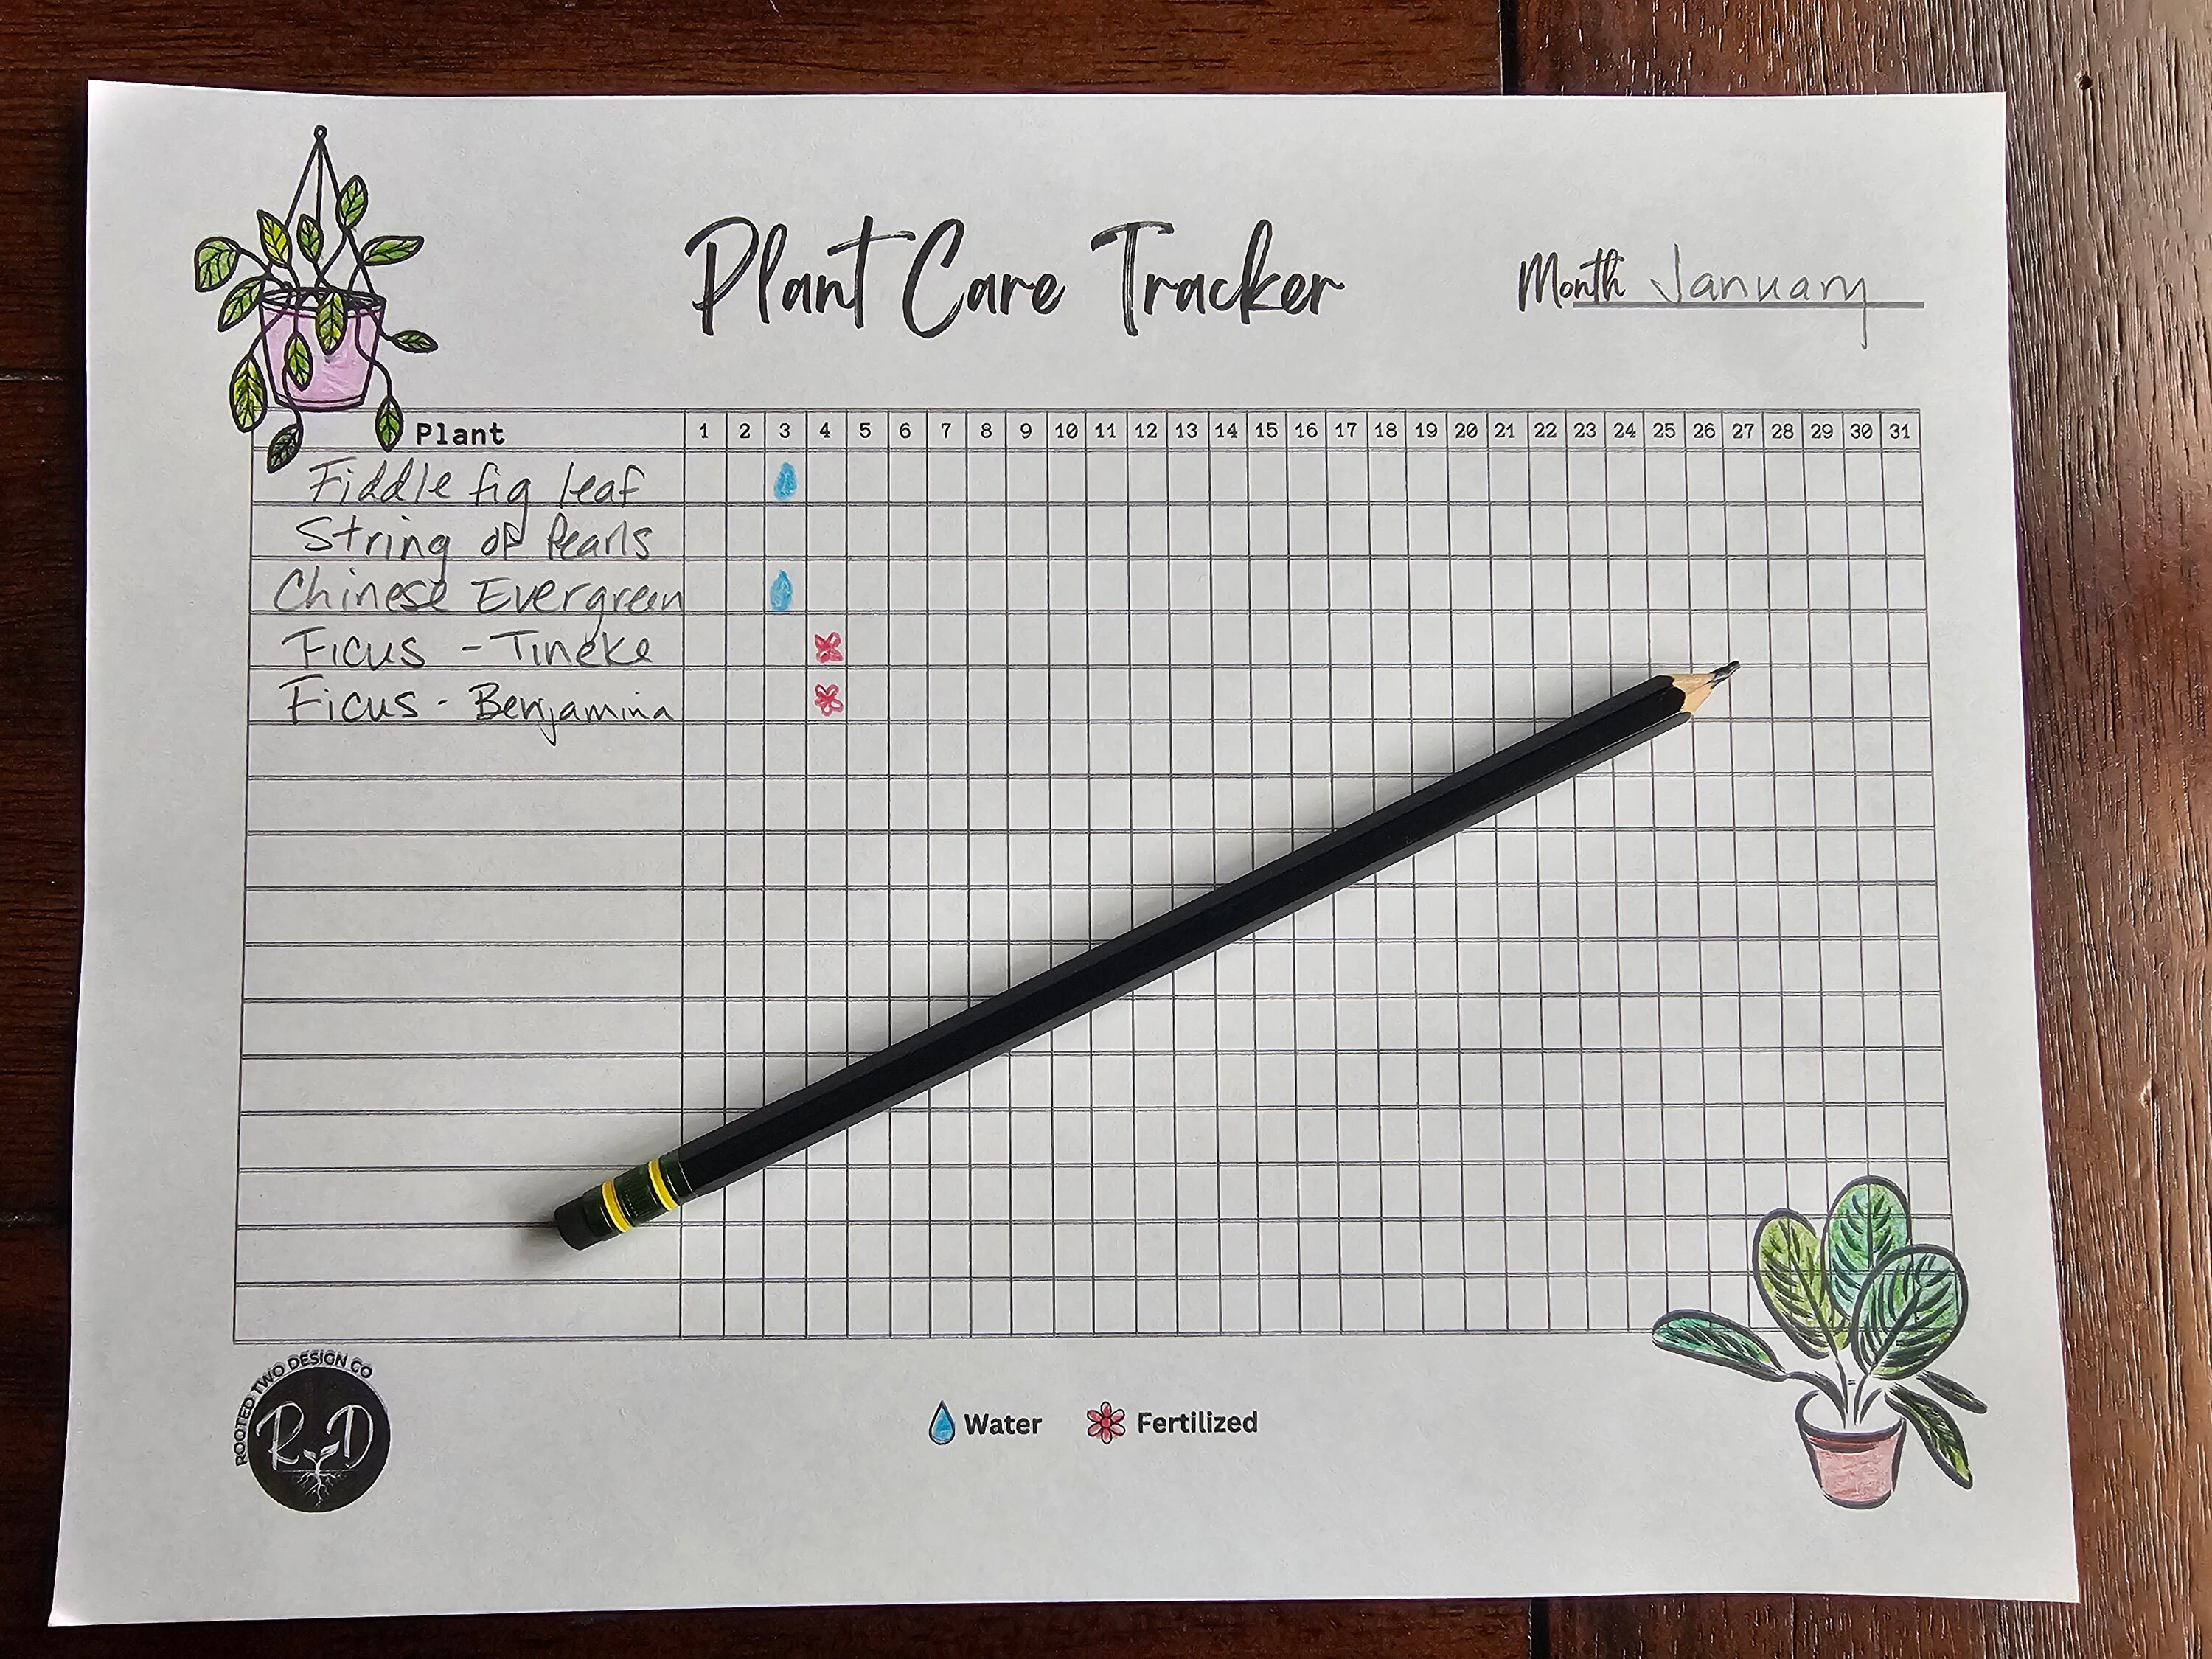 Plant Care Tracker
Month January
Plant 1 2 3 4 5 6 7 8 9 10 11 12 13 14 15 16 17 18 19 20 21 22 23 24 25 26 27 28 29 30 31
Fiddle fig leaf
String of Pearls
Chinese Evergreen
Ficus - Tineke
Ficus - Benjamina
ROOTED TWO DESIGN CO
R D
Water Fertilized